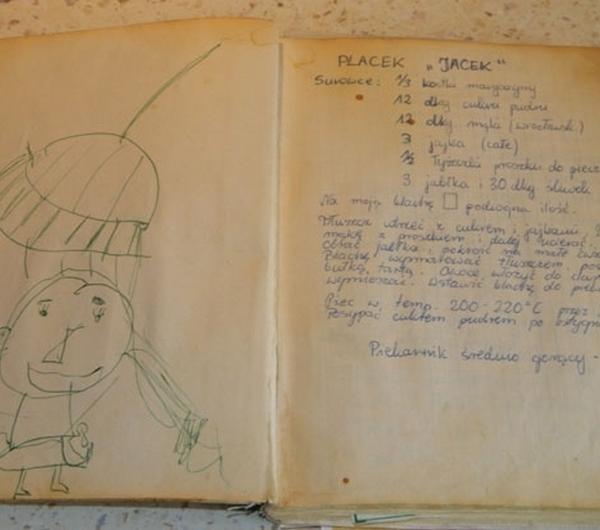 PLACEK „JACEK"
Surowce: 1/3 kostki margaryny
12 dkg cukru pudru
12 dkg mąki (wrocławsk.)
3 jajka (całe)
1/2 łyżeczki proszku do piecz
3 jabłka i 30 dkg śliwek
Na moją blachę □ podwójna ilość.
Tłuszcz utrzeć z cukrem i jajkami,
mąkę z proszkiem i dalej ucierać.
obrać jabłka i pokroić na małe
Blachę wysmarować tłuszczem, pos
bułką tartą. Owoce włożyć do
wymieszać. Wstawić blachę do pie
Piec w temp. 200-220°C przez
Posypać cukrem pudrem po ostygn
Piekarnik średnio gorący -